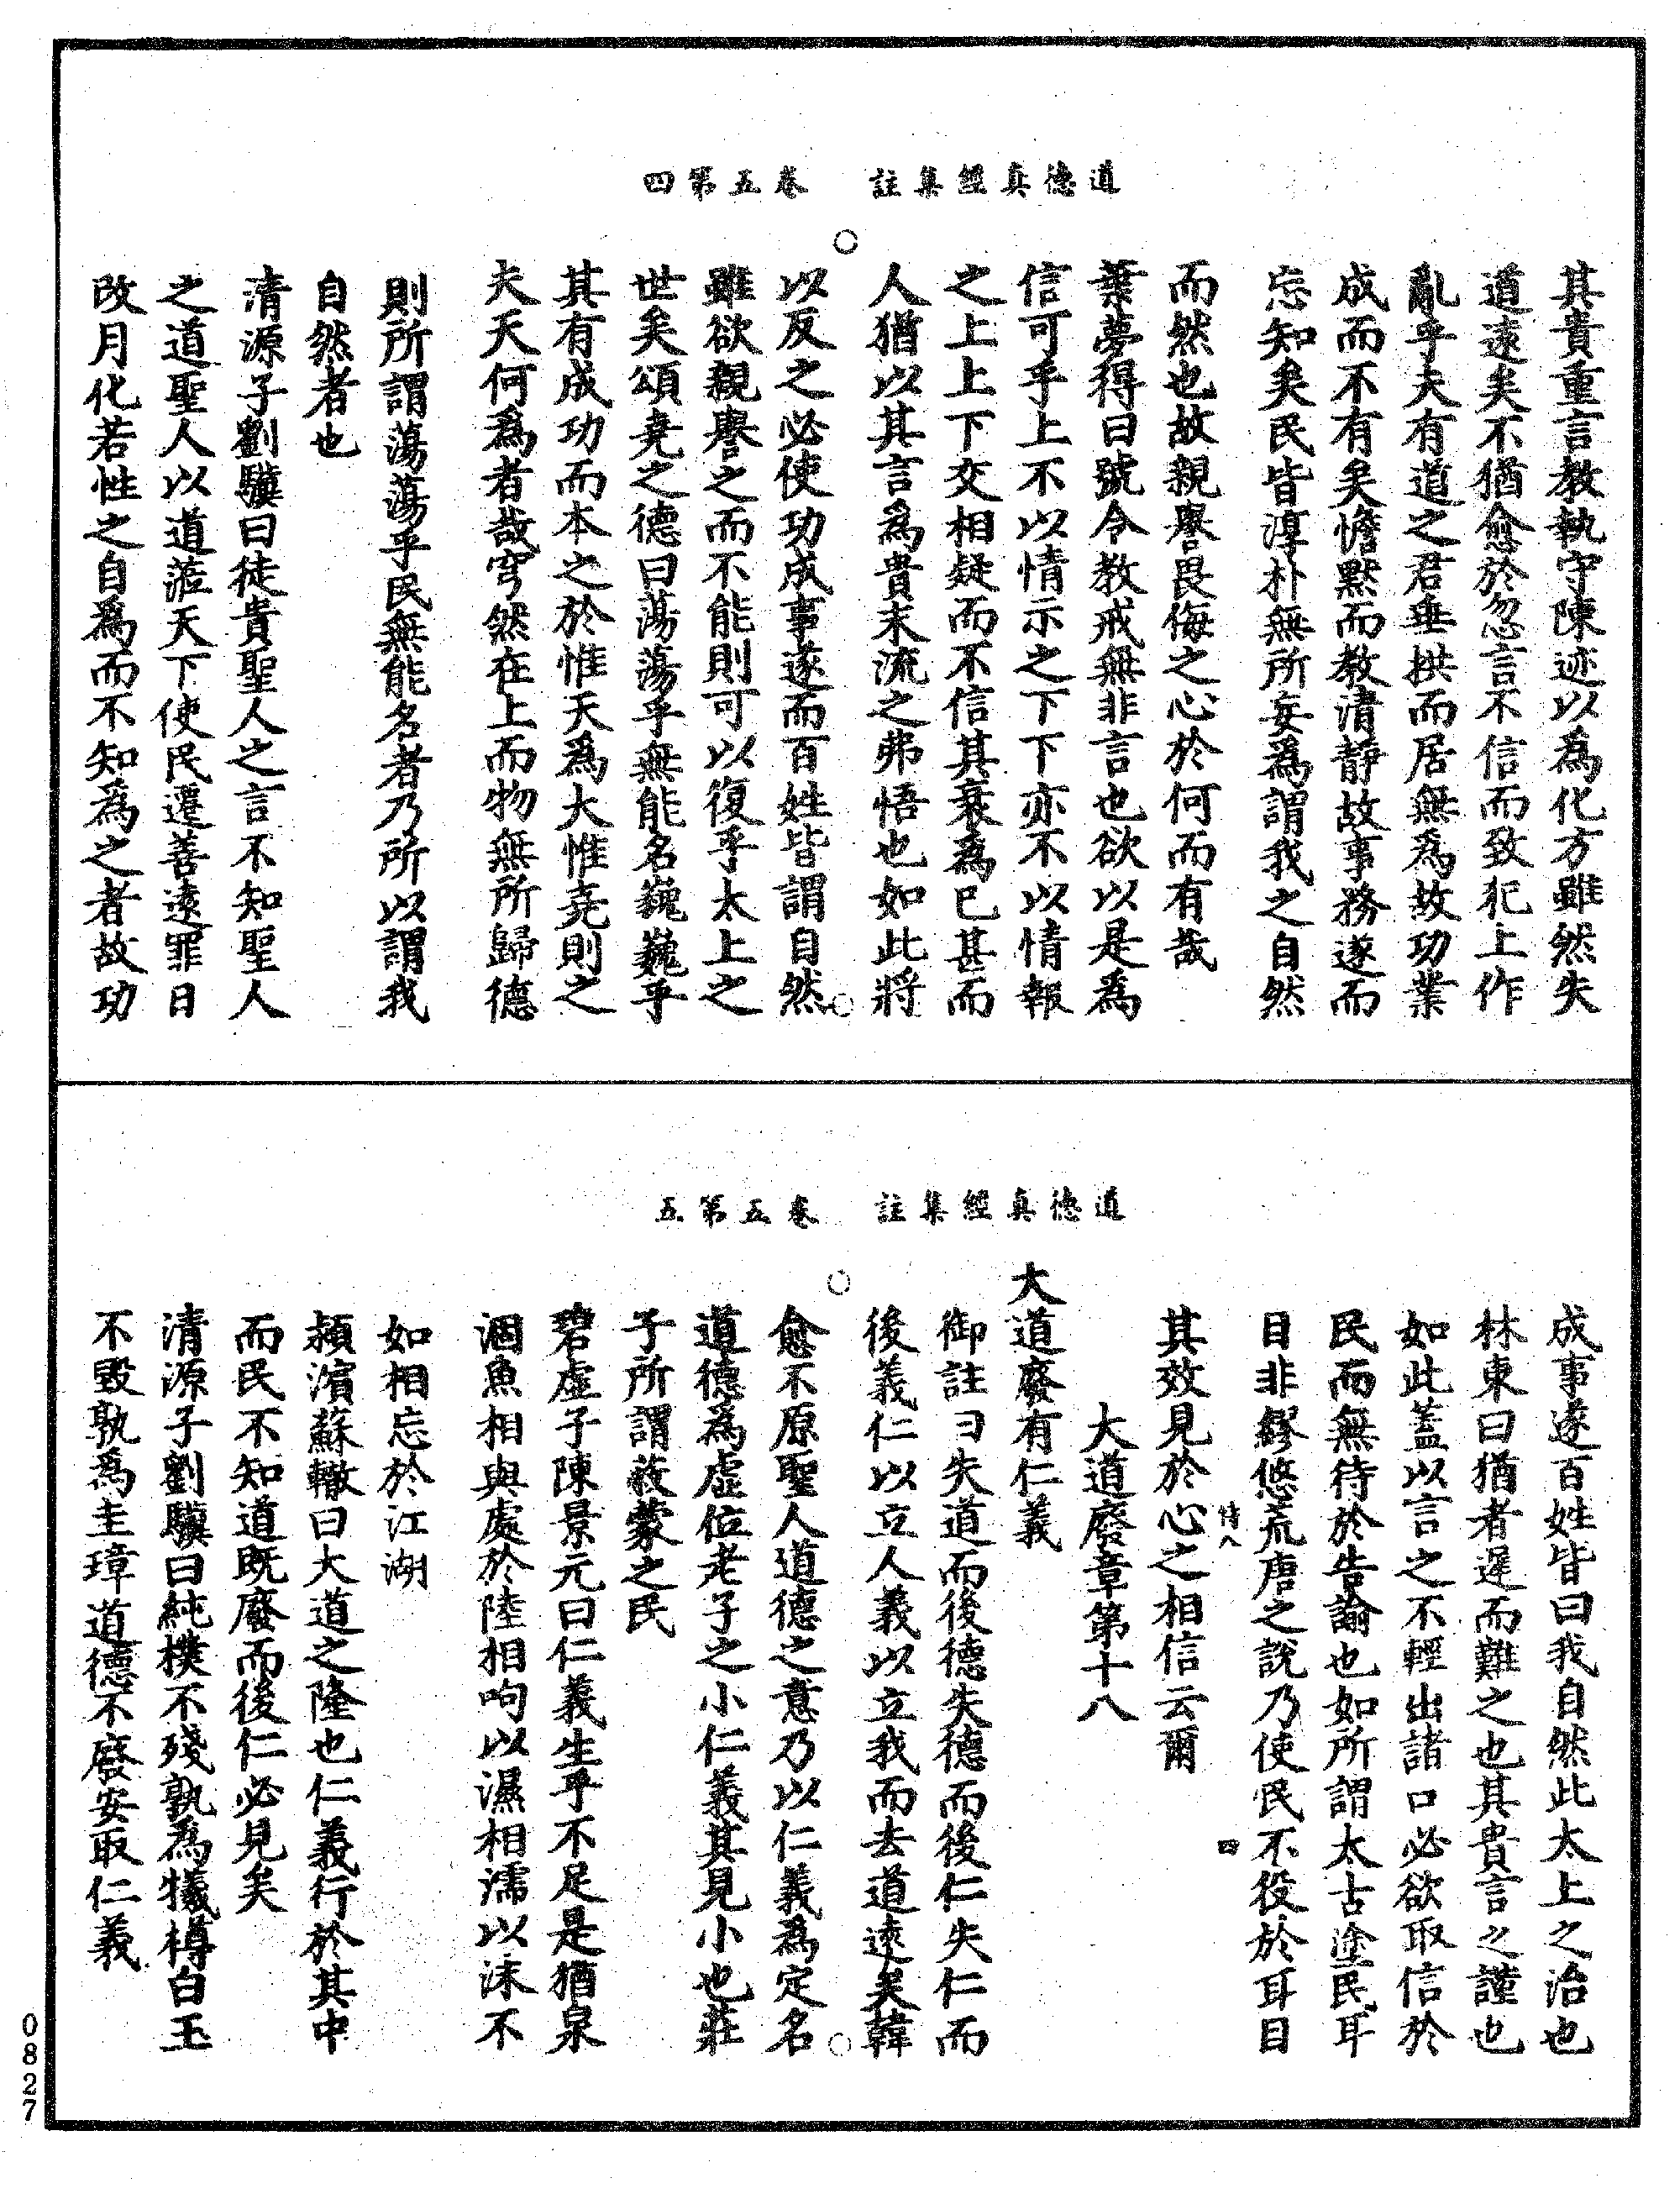 道德真經集註　卷五第四
其貴重言教執守陳迹以為化方雖然失
道遠矣不猶愈於忽言不信而致犯上作
亂乎夫有道之君垂拱而居無為故功業
成而不有矣憺默而教清靜故事務遂而
忘知矣民皆淳朴無所妄為謂我之自然
而然也故親譽畏侮之心於何而有哉
葉夢得曰號令教戒無非言也欲以是為
信可乎上不以情示之下下亦不以情報
之上上下交相疑而不信其衰為已甚而
人猶以其言為貴末流之弗悟也如此將
以反之必使功成事遂而百姓皆謂自然
雖欲親譽之而不能則可以復乎太上之
世矣頌堯之德曰蕩蕩乎無能名巍巍乎
其有成功而本之於惟天為大惟堯則之
夫天何為者哉穹然在上而物無所歸德
則所謂蕩蕩乎民無能名者乃所以謂我
自然者也
清源子劉驥曰徒貴聖人之言不知聖人
之道聖人以道蒞天下使民遷善遠罪日
改月化若性之自為而不知為之者故功
道德真經集註　卷五第五
成事遂百姓皆曰我自然此太上之治也
林東曰猶者遲而難之也其貴言之謹也
如此蓋以言之不輕出諸口必欲取信於
民而無待於告諭也如所謂太古塗民耳
目非繆悠荒唐之說乃使民不役於耳目
四
其效見於心之相信云爾
大道廢章第十八
大道廢有仁義
御註曰失道而後德失德而後仁失仁而
後義仁以立人義以立我而去道遠矣韓
愈不原聖人道德之意乃以仁義為定名
道德為虛位老子之小仁義其見小也莊
子所謂蔽蒙之民
碧虛子陳景元曰仁義生乎不足是猶泉
涸魚相與處於陸相呴以濕相濡以沫不
如相忘於江湖
潁濱蘇轍曰大道之隆也仁義行於其中
而民不知道既廢而後仁必見矣
清源子劉驥曰純樸不殘孰為犧樽白玉
不毀孰為圭璋道德不廢安取仁義
0827